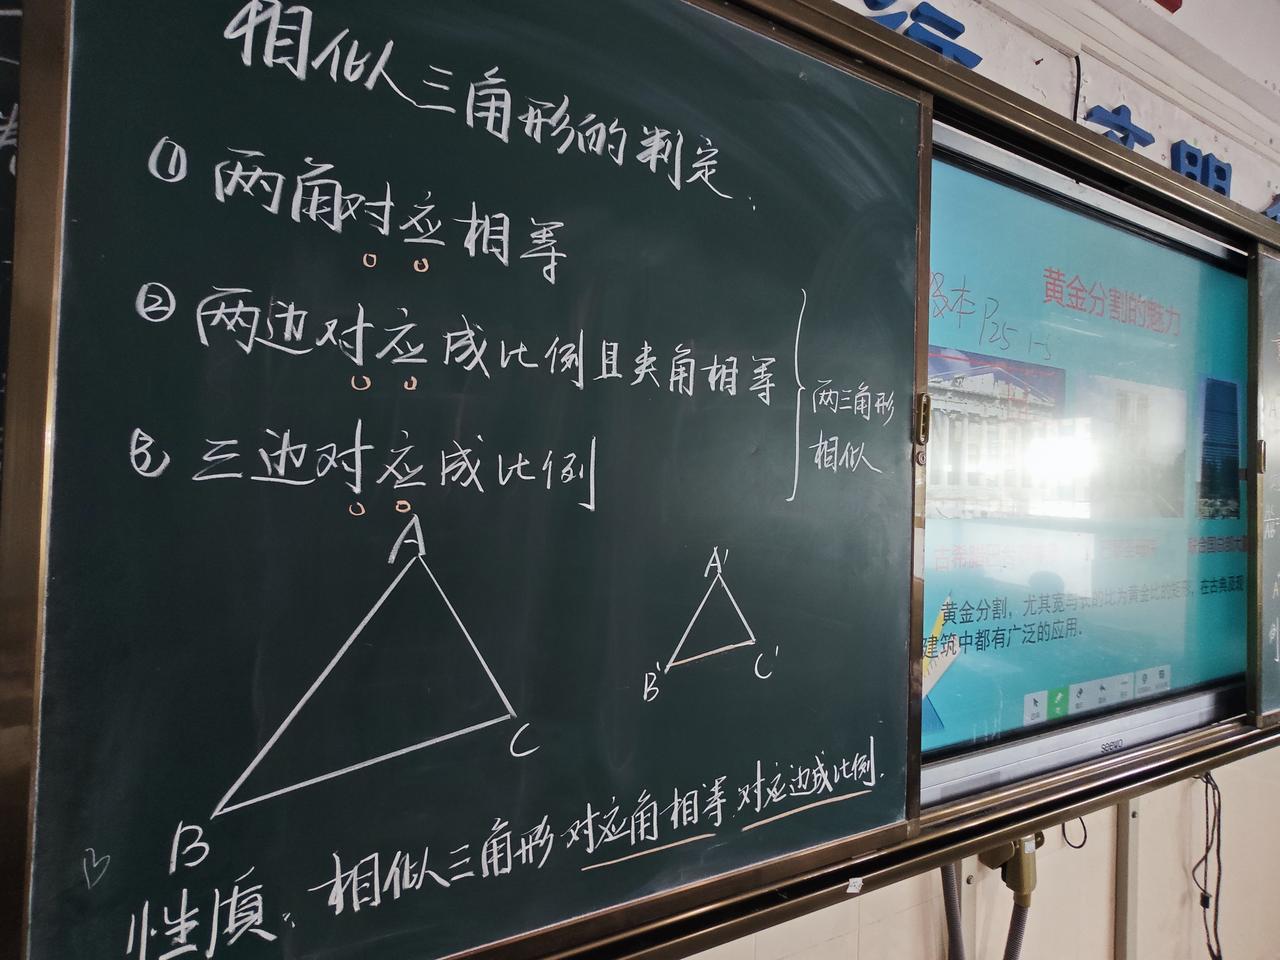 相似三角形的判定:
① 两角对应相等
② 两边对应成比例且夹角相等
③ 三边对应成比例
两三角形
相似
A
B
C
A'
B'
C'
性质: 相似三角形对应角相等 对应边成比例.
文明
黄金分割的魅力
课本 P25 1-3
古希腊
联合国总部大
黄金分割，尤其宽与长的比为黄金比的矩形，在古典及现
建筑中都有广泛的应用.
seewo